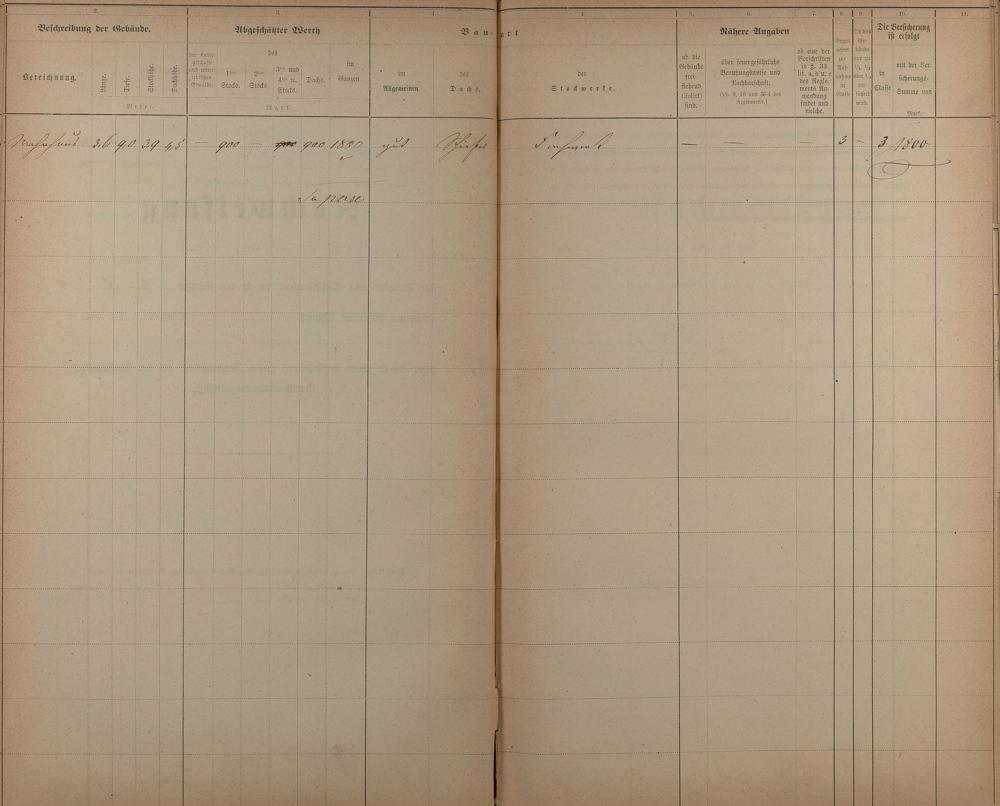 2. 3. 4. 4. 5. 6. 7. 8. 9. 10. 11.
Beschreibung der Gebäude.
Bezeichnung.
Länge.
Tiefe.
Stockhöhe.
Dachhöhe.
Meter.
Abgeschätzter Werth
des
1ten Stocks.
2ten Stocks.
3ten und 4ten u. Stocks.
Dachs.
im Ganzen
Mark.
Bauart
im Allgemeinen.
des Dachs.
der Stockwerke.
Nähere Angaben
ob die Gebäude freistehend (isoliert) sind.
über feuergefährliche Benutzungsweise und Nachbarschaft.
ob eine der Vorschriften in §. 33 lit. a, b u. c des Reglements Anwendung findet und welche.
Die Versicherung ist erfolgt
in Classe
mit der Versicherungs-Summe von
Mark.
Wohnhaus 3,6 9,0 3,9 4,5 — 900 — 900 900 1800 gut Schiefer Fachwerk — — — 3 — 3 1800